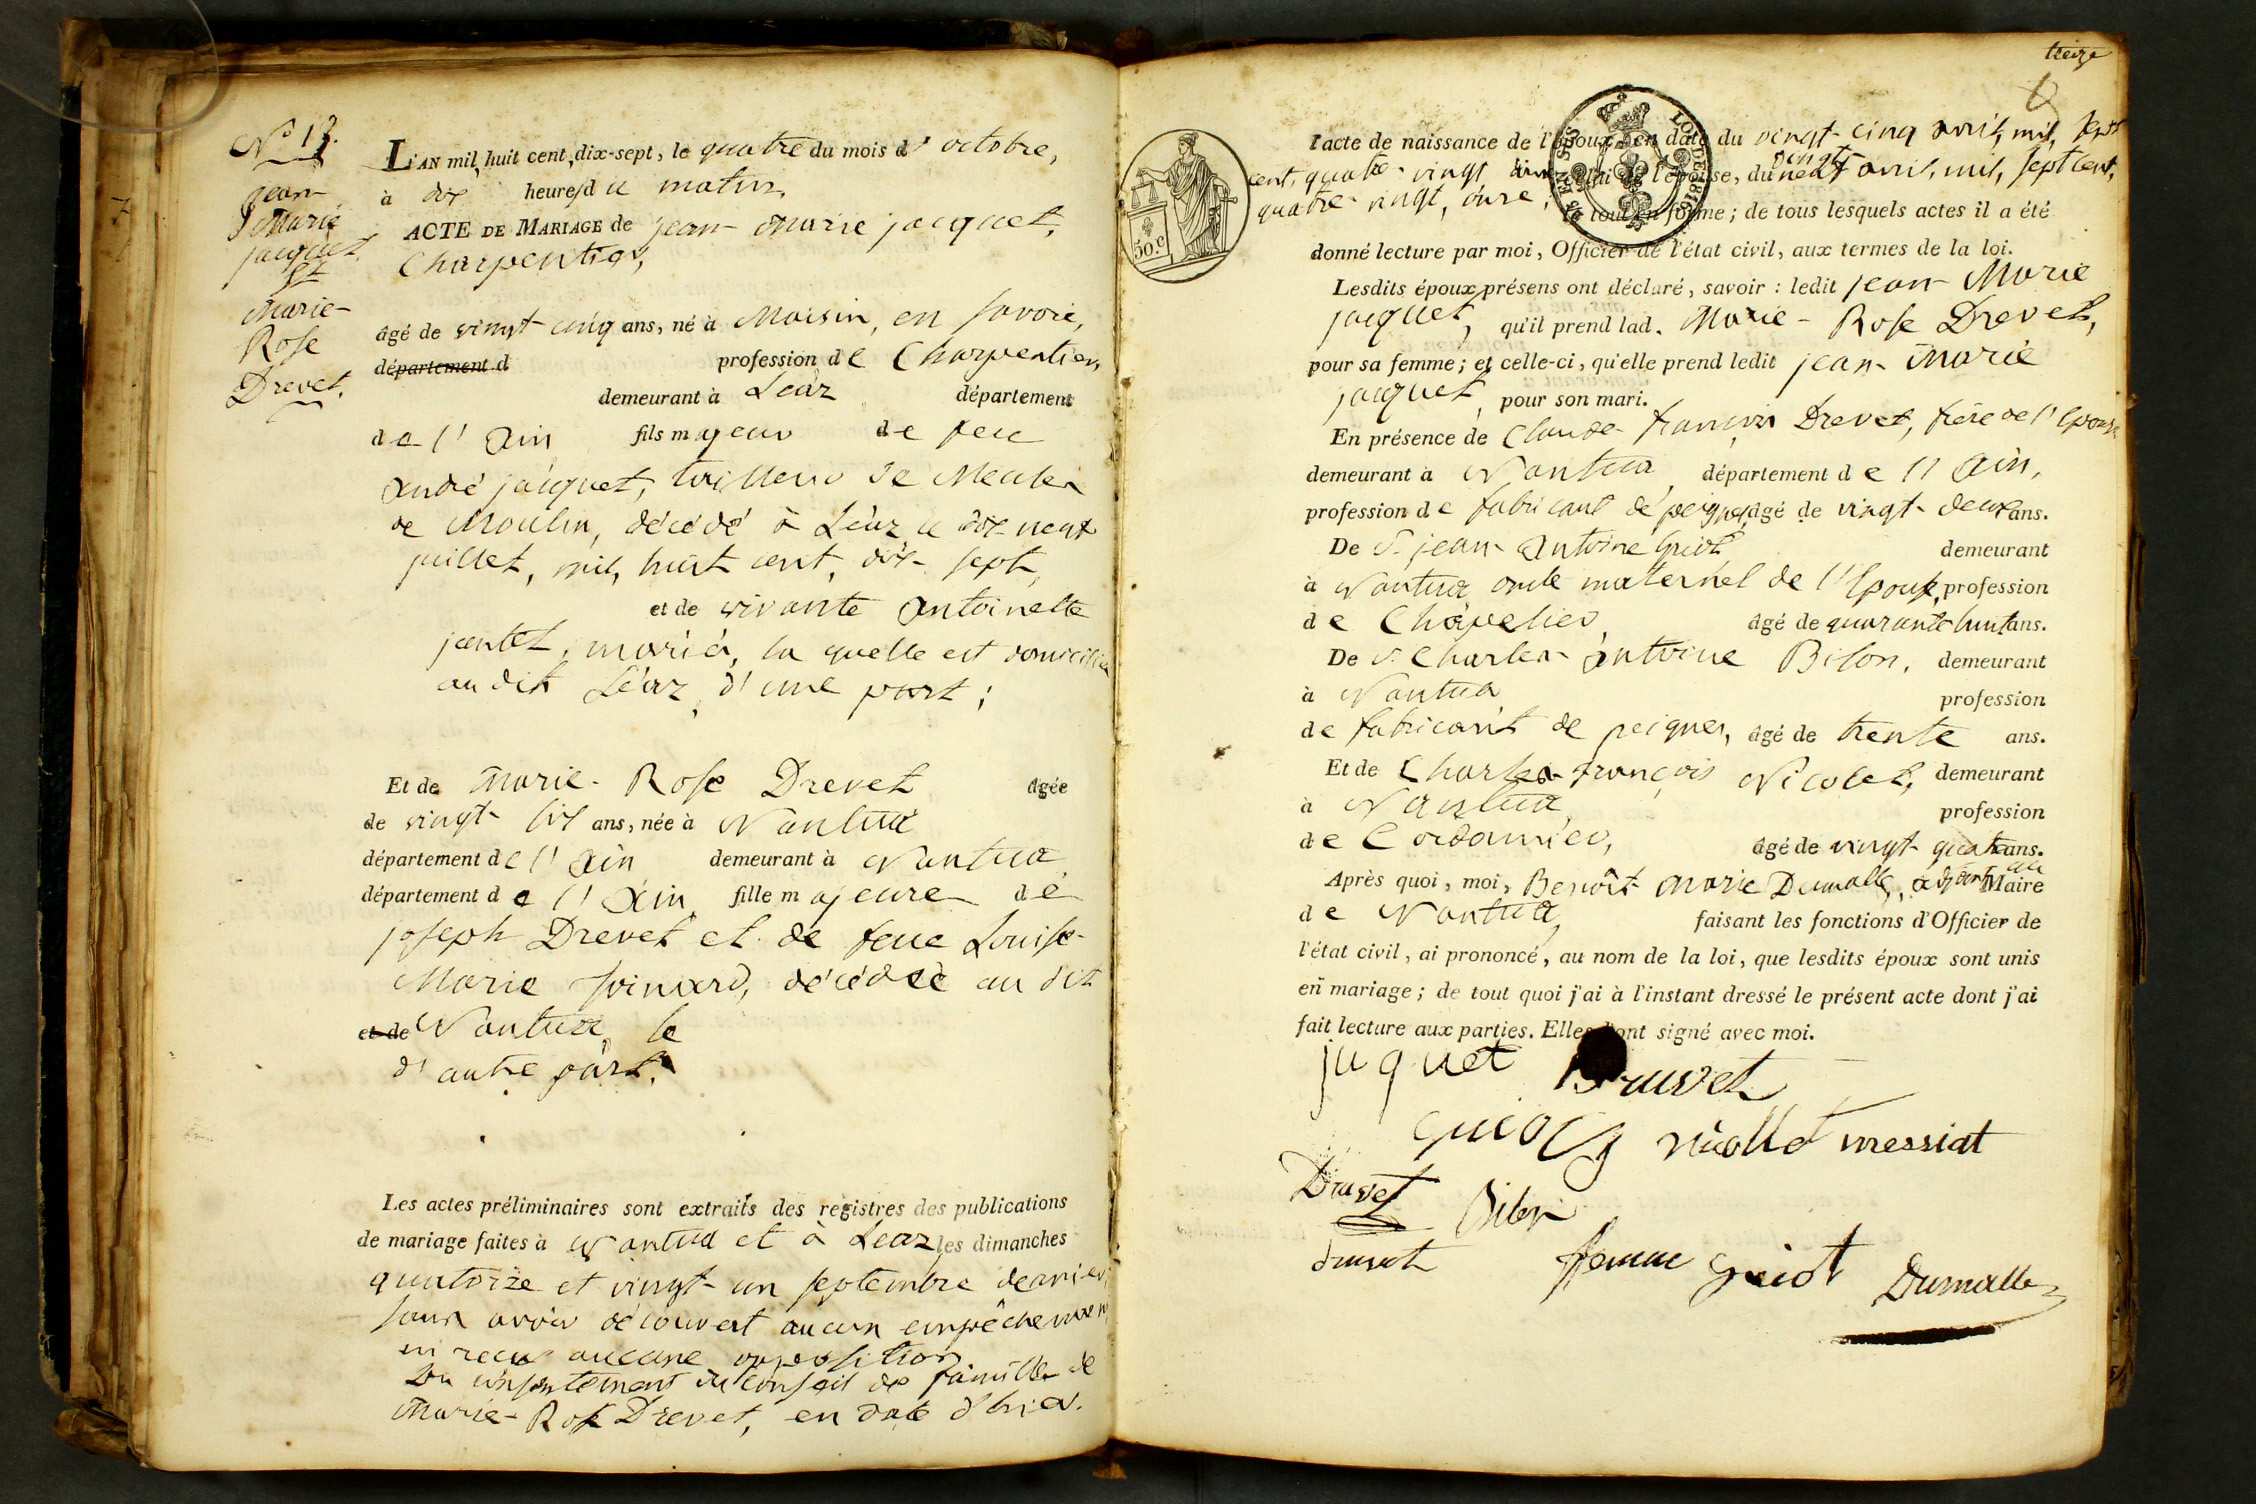 N.º 13.
jean-
Marie
jacquet.
Et
Marie-
Rose
Drevet.
L'AN mil huit cent dix-sept, le quatre du mois d'octobre,
à dix heures du matin,
ACTE DE MARIAGE de jean-Marie jacquet,
Charpentier,
âgé de vingt-cinq ans, né à Moisin, en Savoie,
département d profession de Charpentier,
demeurant à Léaz département
de l'Ain fils majeur de feu
André jacquet, tailleur de Meules
de Moulin, décédé à Léaz le dix-neuf
juillet, mil, huit cent, dix-sept,
et de vivante Antoinette
jantet, mariés, la quelle est domiciliée
au dit Léaz, d'une part;
Et de Marie-Rose Drevet âgée
de vingt-six ans, née à Nantua
département de l'Ain demeurant à Nantua,
département de l'Ain, fille majeure de
joseph Drevet et de feue Louise-
Marie décédée au dit
et de Nantua, le
d'autre part.
Les actes préliminaires sont extraits des registres des publications
de mariage faites à Nantua et à Léaz, les dimanches
quatorze et vingt-un septembre dernier,
sans avoir découvert aucun empêchement
ni reçu aucune opposition
Du consentement du conseil de famille de
Marie-Rose Drevet, en date d'hier.
treize
l'acte de naissance de l'époux, en date du vingt-cinq avril, mil, sept
cent, quatre-vingt celui de l'épouse, du vingt neuf avril, mil, sept cent,
quatre-vingt, onze, le tout en forme; de tous lesquels actes il a été
donné lecture par moi, Officier de l'état civil, aux termes de la loi.
50.c
LOI DE 1816
EN SUS
Lesdits époux présens ont déclaré, savoir : ledit jean-Marie
jacquet, qu'il prend lad. Marie-Rose Drevet,
pour sa femme; et celle-ci, qu'elle prend ledit jean-Marie
jacquet, pour son mari.
En présence de Claude-françois Drevet, frère de l'épouse
demeurant à Nantua, département de l'Ain,
profession de fabricant de peignes, âgé de vingt-deux ans.
De S. jean-Antoine Guiot demeurant
à Nantua oncle maternel de l'Epouse, profession
de Chapelier, âgé de quarante huit ans.
De S. Charles-Antoine Bilon, demeurant
à Nantua profession
de fabricant de peignes, âgé de trente ans.
Et de Charles-françois Nicolet, demeurant
à Nantua, profession
de Cordonnier, âgé de vingt-quatre ans.
Après quoi, moi, Benoît-Marie Dumalle, adjoint au Maire
de Nantua, faisant les fonctions d'Officier de
l'état civil, ai prononcé, au nom de la loi, que lesdits époux sont unis
en mariage; de tout quoi j'ai à l'instant dressé le présent acte dont j'ai
fait lecture aux parties. Elles l'ont signé avec moi.
jaquet Druvet
guiot nicollet messiat
Druvet Bilon
druvet femme guiot Dumalle